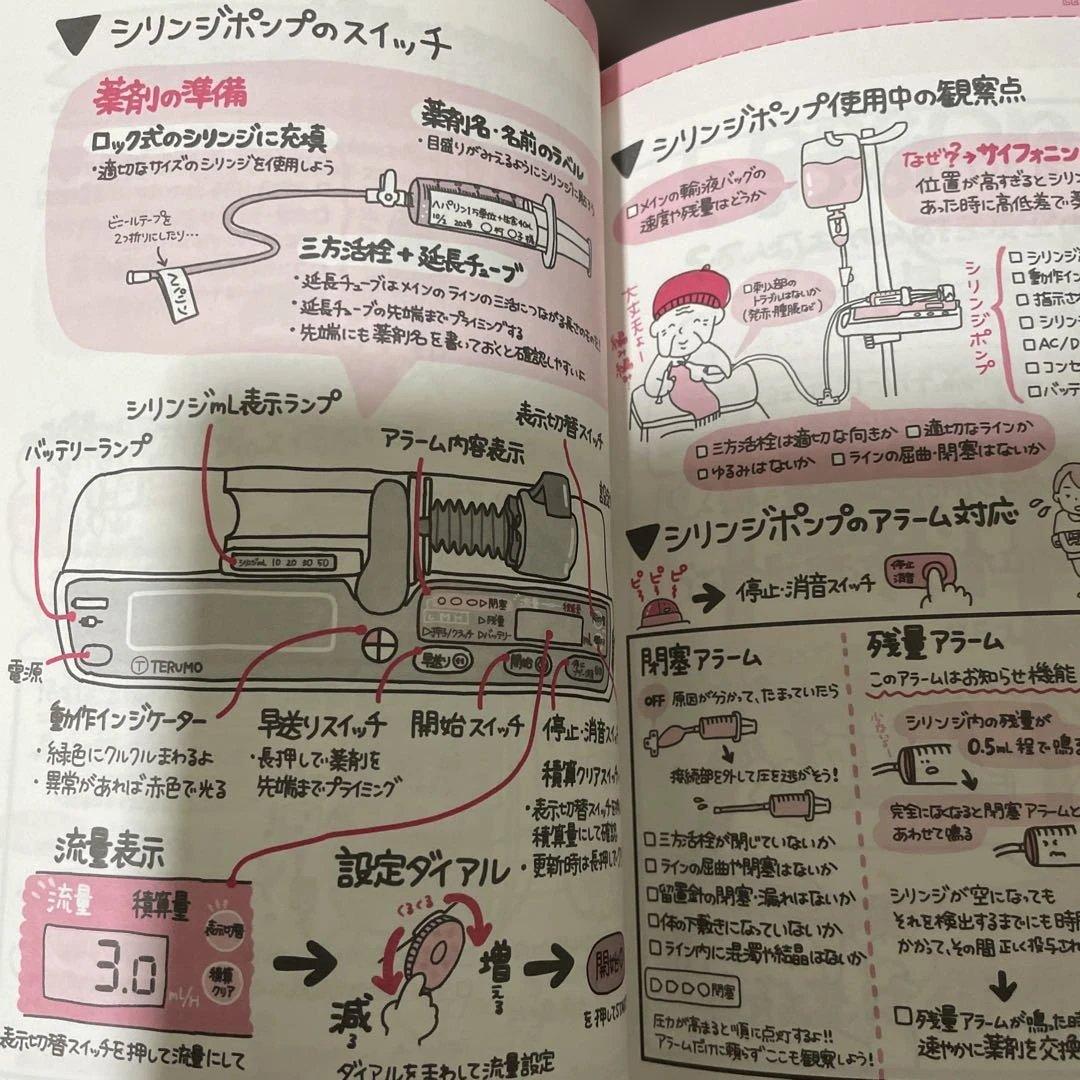 ▼シリンジポンプのスイッチ
薬剤の準備
ロック式のシリンジに充填
・適切なサイズのシリンジを使用しよう
薬剤名・名前のラベル
・目盛りがみえるようにシリンジに
ビニールテープを
2つ折りにしたり…
ヘパリン
ヘパリン1万単位+生食40mL
三方活栓+延長チューブ
・延長チューブはメインのラインの三活につながる長さのものを!
・延長チューブの先端までプライミングする
・先端にも薬剤名を書いておくと確認しやすいよ
シリンジmL表示ランプ
バッテリーランプ
アラーム内容表示
表示切替スイッチ
シリンジmL 10 20 30 50
▷閉塞
▷残量
▷押子/クラッチ ▷バッテリー
積算量
mL
TERUMO
早送り
開始
電源
動作インジケーター
・緑色にクルクルまわるよ
・異常があれば赤色で光る
早送りスイッチ
・長押しで薬剤を
先端までプライミング
開始スイッチ
停止・消音スイッ
積算クリアスイッチ
・表示切替スイッチを
積算量にして確認
・更新時は長押しで
流量表示
流量 積算量
表示切替
3.0
mL/H
積算
クリア
表示切替スイッチを押して流量にして
設定ダイアル
くるくる
減る
増える
ダイアルをまわして流量設定
開始
を押してSTA
▼シリンジポンプ使用中の観察点
□メインの輸液バッグの
速度や残量はどうか
なぜ?→サイフォニン
位置が高すぎるとシリン
あった時に高低差で薬
大丈夫よー
□刺入部の
トラブルはないか
(発赤・腫脹など)
シリンジポンプ
□シリンジ
□動作イン
□指示さ
□シリン
□AC/D
□コンセ
□バッテ
□三方活栓は適切な向きか □適切なラインか
□ゆるみはないか □ラインの屈曲・閉塞はないか
▼シリンジポンプのアラーム対応
ピ ピ ピ
→ 停止・消音スイッチ
停止
消音
閉塞アラーム
OFF 原因が分かって、たまっていたら
接続部を外して圧を逃がそう!
□三方活栓が閉じていないか
□ラインの屈曲や閉塞はないか
□留置針の閉塞・漏れはないか
□体の下敷きになっていないか
□ライン内に混濁や結晶はないか
▷▷▷○閉塞
圧力が高まると順に点灯するよ!!
アラームだけに頼らずここも観察しよう!
残量アラーム
このアラームはお知らせ機能
少ないよー
シリンジ内の残量が
0.5mL程で鳴る
完全になくなると閉塞アラームと
あわせて鳴る
シリンジが空になっても
それを検出するまでにも時間
かかって、その間正しく投与され
□残量アラームが鳴った時
速やかに薬剤を交換